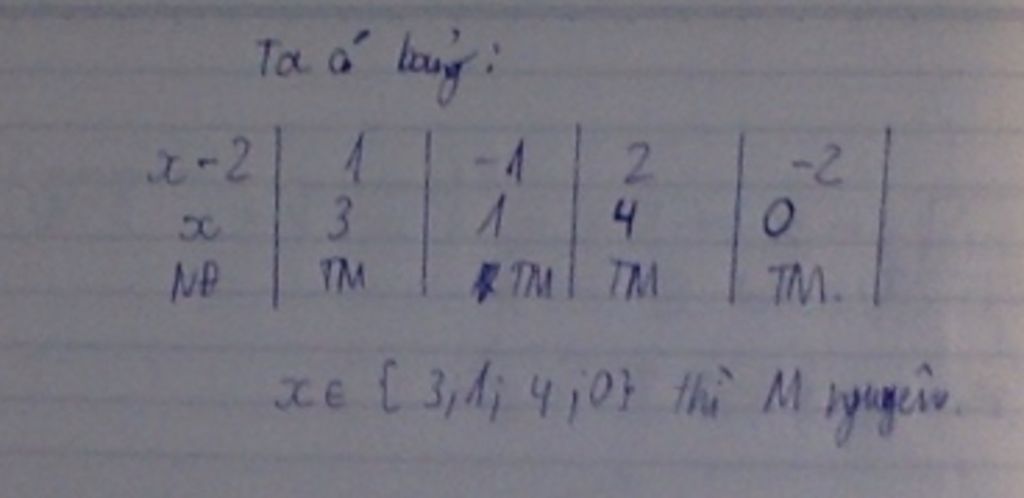 Ta có bảng:
x-2 | 1 | -1 | 2 | -2 |
x | 3 | 1 | 4 | 0 |
NĐ | TM | TM | TM | TM. |
x ∈ { 3; 1; 4; 0} thì M nguyên.